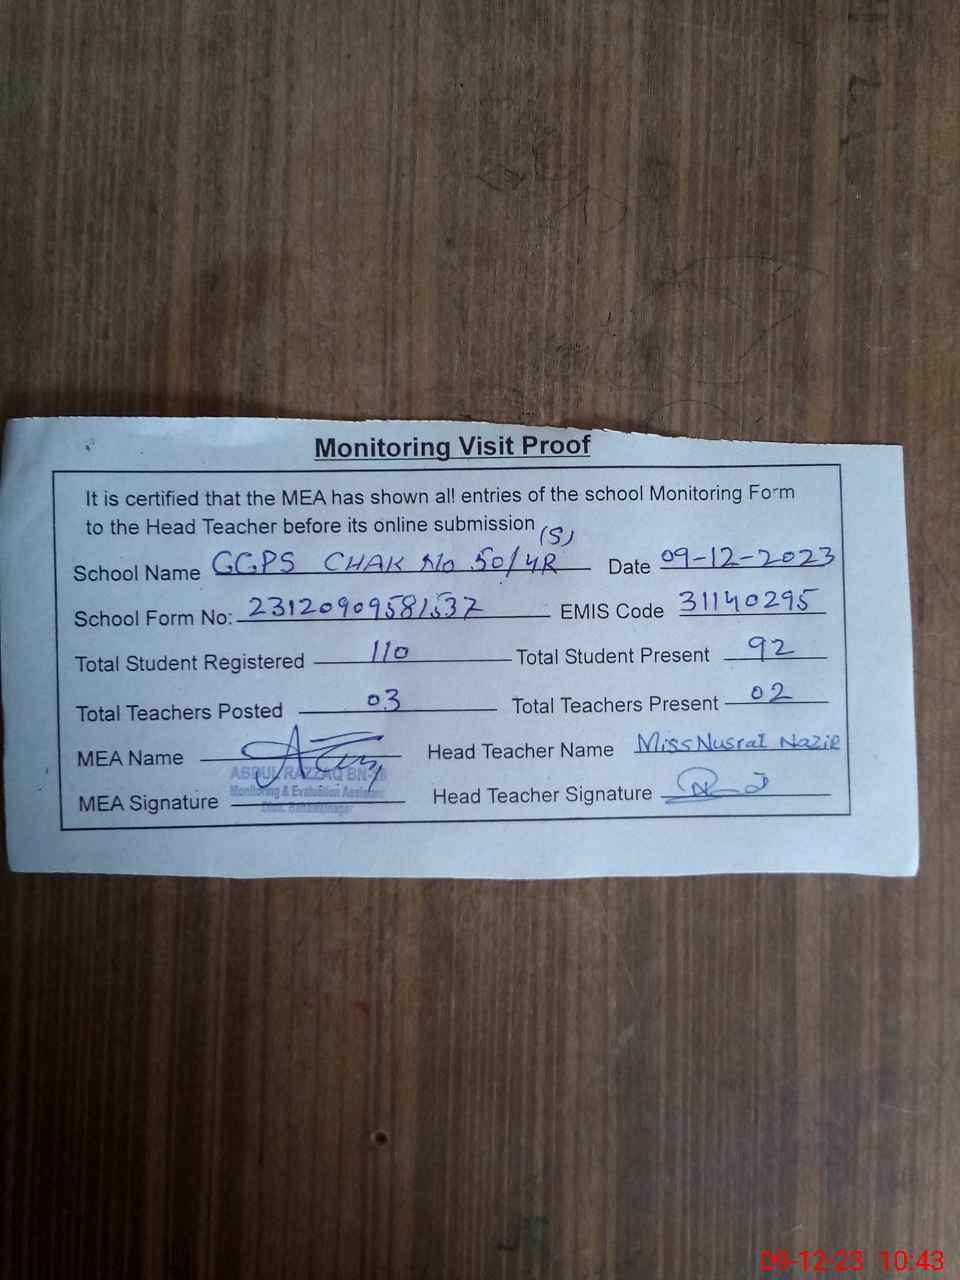 Monitoring Visit Proof
It is certified that the MEA has shown all entries of the school Monitoring Form
to the Head Teacher before its online submission
(S)
School Name GGPS CHAK No 50/4R Date 09-12-2023
School Form No: 23120909581537 EMIS Code 31140295
Total Student Registered 110 Total Student Present 92
Total Teachers Posted 03 Total Teachers Present 02
MEA Name Head Teacher Name Miss Nusrat Nazir
ABDUL RAZZAQ
Monitoring & Evaluation Assistant
MEA Signature Head Teacher Signature
09-12-23 10:43